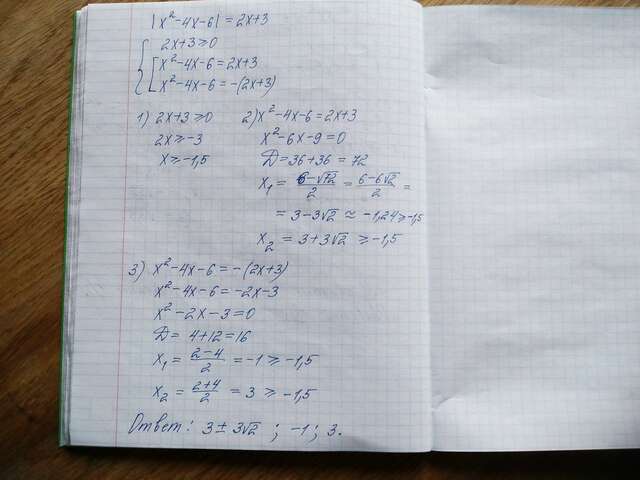 |x²-4x-6| = 2x+3
2x+3≥0
x²-4x-6=2x+3
x²-4x-6=-(2x+3)
1) 2x+3≥0
2x≥-3
x≥-1,5
2) x²-4x-6=2x+3
x²-6x-9=0
D=36+36=72
x₁ = (6-√72)/2 = (6-6√2)/2 =
= 3-3√2 ≈ -1,24≥-1,5
x₂ = 3+3√2 ≥-1,5
3) x²-4x-6=-(2x+3)
x²-4x-6=-2x-3
x²-2x-3=0
D= 4+12=16
x₁ = (2-4)/2 = -1 ≥ -1,5
x₂ = (2+4)/2 = 3 ≥ -1,5
Ответ: 3±3√2 ; -1; 3.